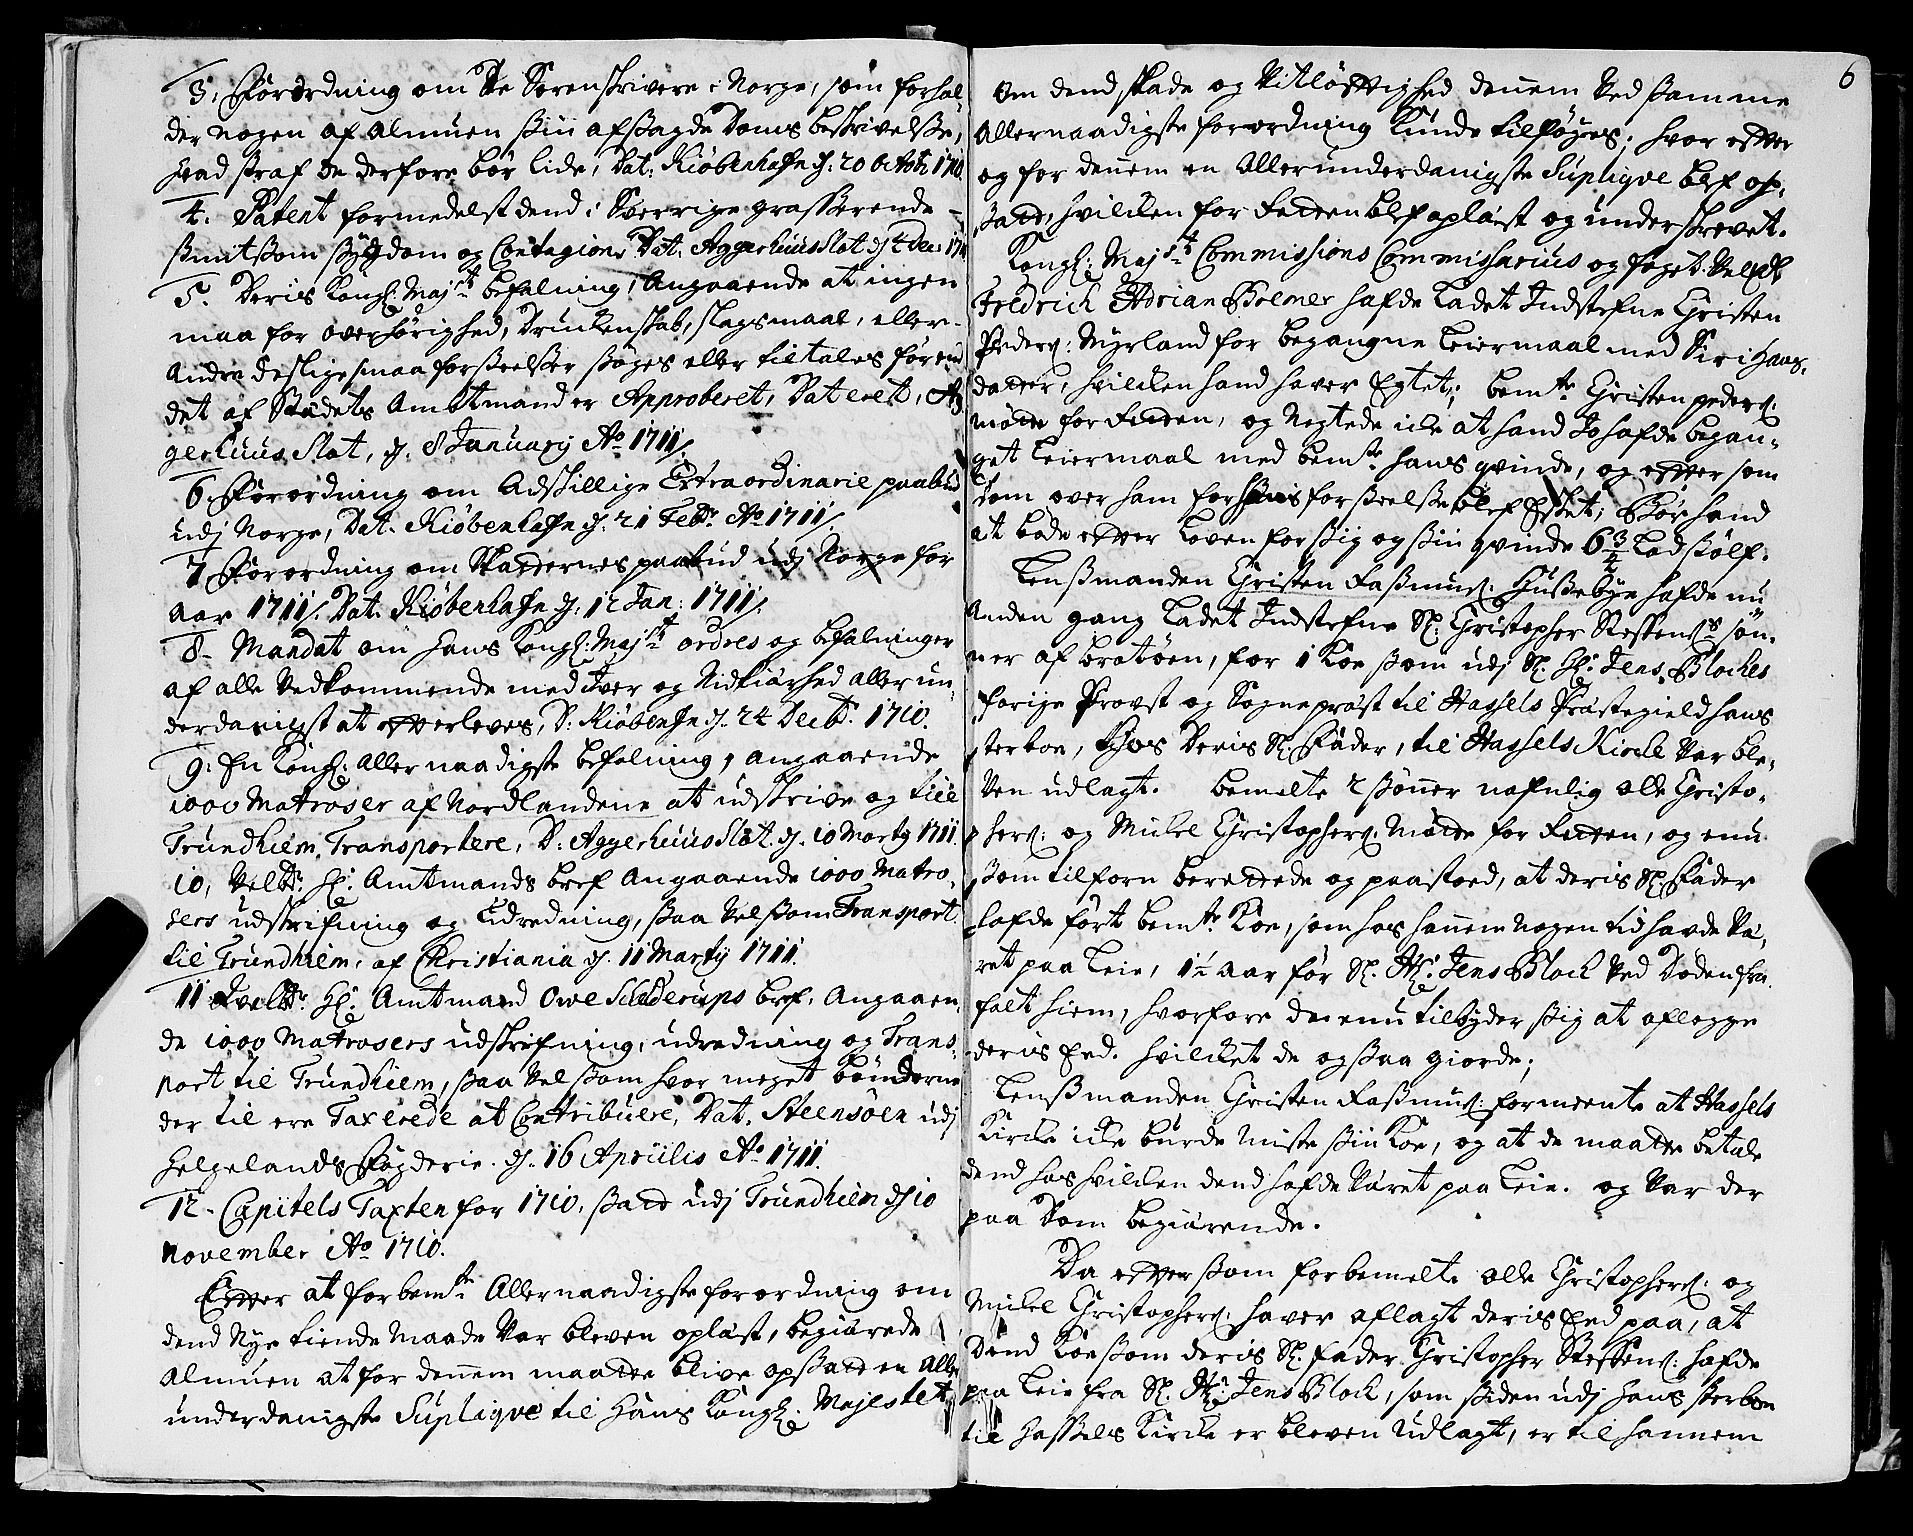 3. Forordning om de Sorenskrivere i Norge, som forhol-
der nogen af Almuen sin afsagde Doms beskrivelse,
hvad straf de derfore bør lide, Dat. Kiøbenhafn d. 20 Octobr 1710.
4. Patent formedelst dend i Sverrige grasserende
smitsom sygdom og Contagion, Dat. Aggerhuus Slot d. 4 Dec: 1710
5. Deris Kongl: Majts befalning, Angaaende at ingen
maa for overhørighed, Druckenskab, slagsmaal, eller
Andre deslige smaa forseelser søges eller tiltales før end
det af Stedets Ambtmand er Approberet, Dateret, Ag-
gerhuus Slot, d. 8 January Ao 1711.
6. Forordning om Adskillige Extraordinarie paabud
udj Norge, Dat. Kiøbenhafn d. 21 Febr. Ao 1711.
7 Forordning om Skatternes paabud udj Norge for
Aar 1711. Dat. Kiøbenhafn d. 12 Jan: 1711.
8. Mandat om Hans Kongl: Majts ordres og befalninger
af alle Vedkommende med Iver og Nidkiærhed allerun-
derdanigst at efterleves, D. Kiøbenhfn d. 24 Decbr. 1710.
9. En Kongl: Allernaadigste befalning, angaaende
1000 Matroser af Nordlandene at udskrive og till
Trundhiem Transportere, D: Aggerhuus Slot d. 10 Marty 1711.
10, Velbr. Hr. Amtmands bref Angaaende 1000 Matro-
sers udskrifning og Udredning, saa vel som Transport
til Trundhiem, af Christiania d. 11 Marty 1711.
11 Velbr. Hr. Amtmand Owe Schelderups bref, Angaaen-
de 1000 Matrosers udskrifning, udredning og Trans-
port til Trundhiem, saa vel som hvor meget bønderne
der til ere Taxerede at Contribuere, Dat. Steensøen udj
Helgelands Fogderie. d. 16 Aprilis Ao 1711.
12. Capitels Taxten for 1710. satt udj Trundhiem d. 10
November Ao 1710.
Efter at forbemte Allernaadigste forordning om
dend Nye tiende Maade var bleven oplæst, begiærede
Almuen at for dennem maatte blive opsatt en Aller
underdanigste Suplique til Hans Kongl: Majestet
6
Om dend skade og Vitløftighed dennem ved samme
Allernaadigste forordning kunde tilføyes; hvor efter
og for dennem en Allerunderdanigste Suplique blef op-
satt, hvilcken for Retten blef oplæst og underskrevet.
Kongl: Majts Commissions Commissarius og foget
Fredrich Adrian Bolmer hafde ladet Indstefne Christen
Peders: Myrland for begangne Leiermaal med Siri Hans-
datter, hvilcken hand haver Egtet; bemte Christen peders:
møtte for Retten, og Negtede icke at hand Jo hafde began-
get Leiermaal med bemte hans qvinde, og eftersom
dom over ham for hans forseelse blef Esket; Bør hand
at bøde efter Loven for sig og sin qvinde 6 3/4 Lod sølf.
Lensmanden Christen Rasmus: Hussebye hafde nu
Anden gang ladet Indstefne Sl: Christopher Steffens: søn-
ner af bratøen, for 1 Koe som udj Sl. Hr. Jens Bloches
forige Provst og Sogneprest til Hassels Præstegield hans
sterboe, hos Deris Sl. Fader, til Hassels Kircke var ble-
ven udlagt. bemelte 2 sønner nafnlig Olle Christo-
phers: og Mickel Christophers: møtte for Retten, og enu
som tilforn berettede og paastoed, at deris Sl. Fader
hafde ført bemte Koe, som hos hannem nogen tid havde væ-
ret paa Leie, 1½ aar før Sl. Hr. Jens Bloch ved Døden fra
falt hiem, hvorfore de enu tilbyder sig at aflegge
deris Eed. hvilcket de og saa giorde;
Lensmanden Christen Rasmus: formeente at Hassels
Kircke icke burde miste sin Koe, og at de maatte betale
dend hos hvilcken dend hafde været paa Leie. og var der
paa Dom begiærende.
Da eftersom forbemelte Olle Christophers: og
Mickel Christophers: haver aflagt deris Eed paa, at
Dend Koe som deris Sl. fader Christopher Steffens: hafde
paa Leie fra Sl. Hr. Jens Bloch, som siden udj hans sterboe
til Hassels Kircke er bleven udlagt, er til hannem